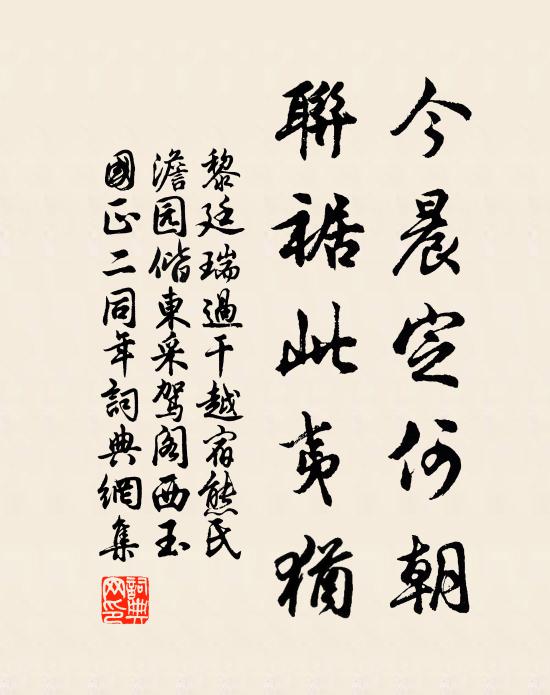 今晨定何朝
聯裾此夷猶
黎廷瑞過干越宿熊氏
澹园偕東采駕阁西玉
國正二同年詞典網集
詞典網印